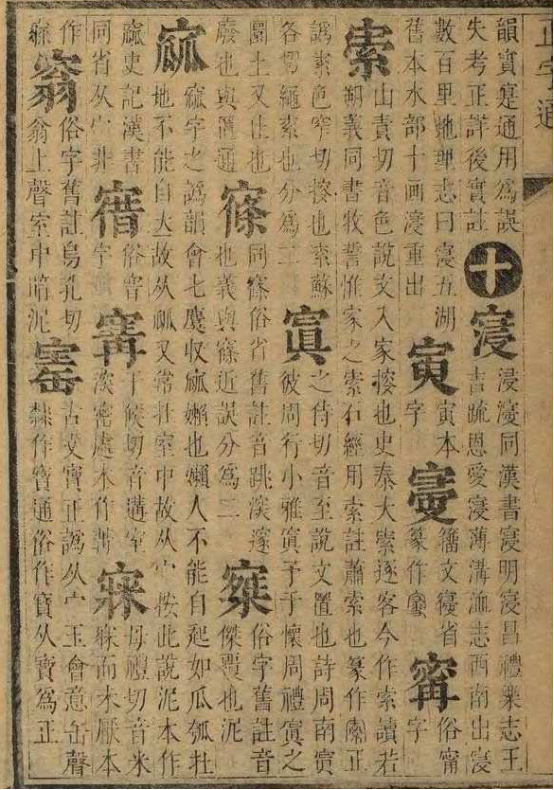 正字通
韻實寔通用為誤
失考正詳後實註
十
寖
浸寖同漢書寖明寖昌禮樂志王
吉疏恩愛寖薄溝洫志西南出寖
數百里地理志曰寖五湖
舊本水部十画寖重出
寅
寅本
字
籀文寑省
篆作
俗甯
字
山責切音色說文入家搜也史秦大索逐客今作索讀若
朔義同書牧誓惟家之索石經用索註蕭索也篆作正
譌素色窄切搜也索蘇
各切繩索也分為二
寘
之侍切音至說文置也詩周南寘
彼周行小雅寘予于懷周禮寘之
圜土又止也
廢也與置通
同寮俗省舊註音跳深邃
也義與窱近誤分為二
俗字舊註音
傑覆也泥
㼌字之譌韻會七麌收㼌嬾也嬾人不能自起如瓜瓠在
地不能自立故从㼌又常在室中故从宀按此說泥本作
窳史記漢書
同省从宀非
俗
字
候切音遘室
深密處本作冓
寐
母禮切音米
寐而未厭本
作
寐
俗字舊註烏孔切
翁上聲室中暗泥
寚
古文寶正譌从宀玉會意缶聲
隸作寶通俗作寳从寶為正